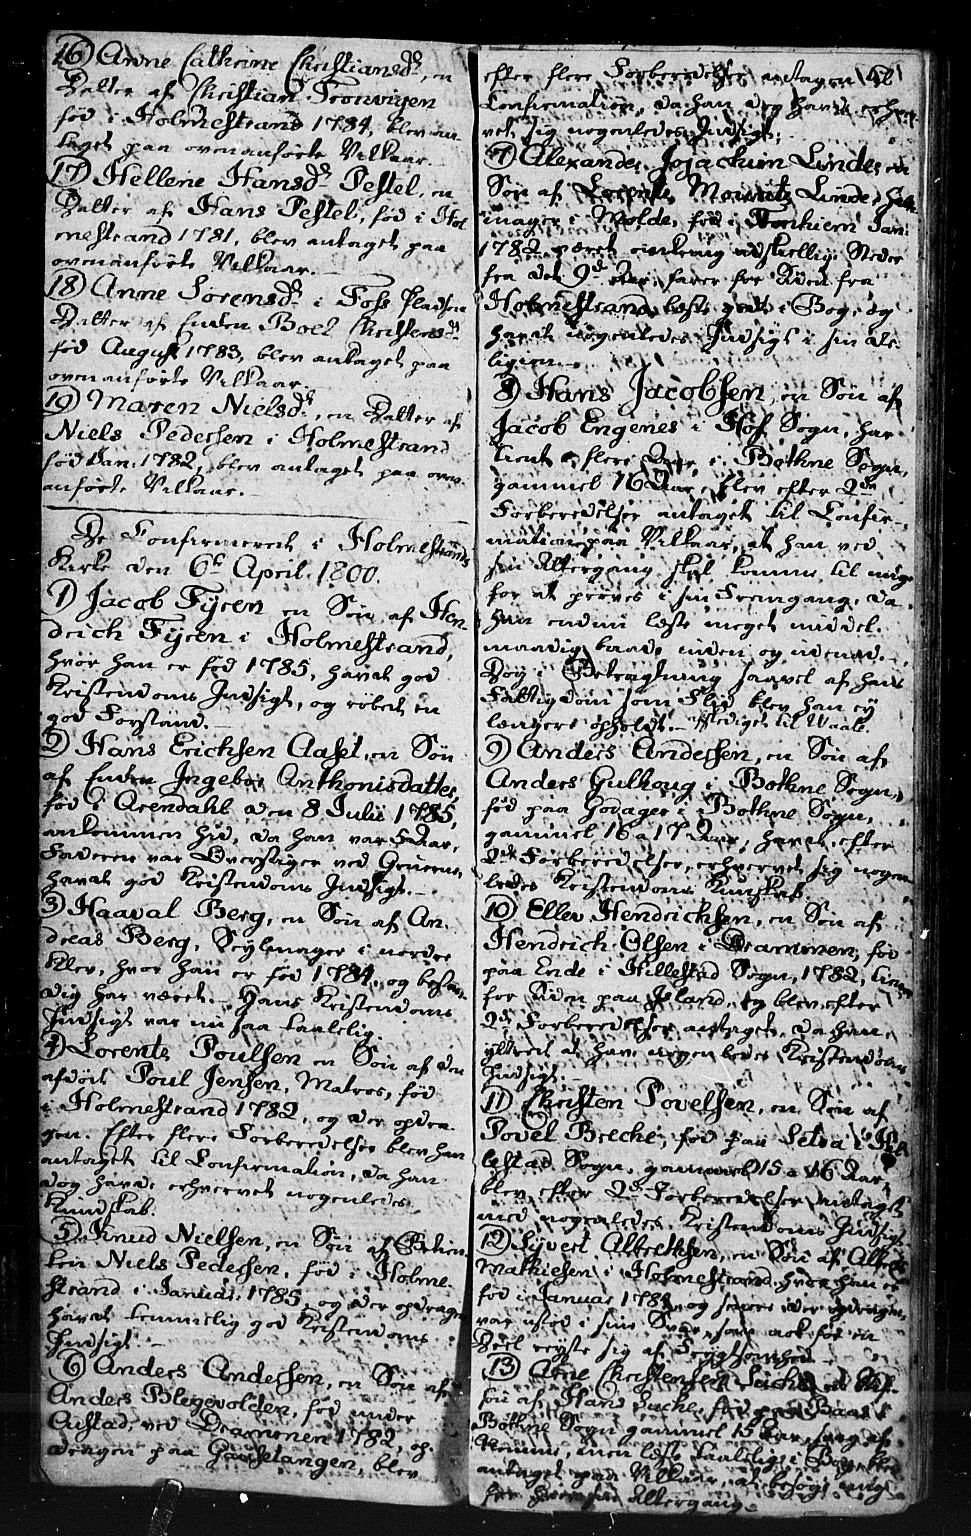 16) Anne Cathrine Christiansdr, en
Datter af Christian Tronvigen
fød i Holmestrand 1784, blev an-
taget paa ovenanførte Vilkaar.
17) Hellene Hansdr Pestel, en
Datter af Hans Pestel, fød i Hol
mestrand 1781, blev antaget paa
ovenanførte Vilkaar.
18) Anne Sørensdr i Foss Pladsen
Datter af Enken Boel Christensdr
fød August 1783, blev antaget paa
ovenanførte Vilkaar.
19) Maren Nielsdr, en Datter af
Niels Pedersen i Holmestrand
fød Jan: 1782, blev antaget paa oven-
anførte Vilkaar.
De Confirmerede i Holmestrands
Kirke den 6te April 1800.
1) Jacob Fyren en Søn af Hen-
drich Fyren i Holmestrand,
hvor han er fød 1785, havde god
Kristendoms Indsigt, og røbede en
god Forstand.
2) Hans Erichsen Aaset, en Søn
af Enken Ingebor Anthonisdatter,
fød i Arendahl den 8 Julii 1785,
ankommen hid, da han var 5 Aar,
Faderen var Overstiger ved Gruerne,
havde god Kristendoms Indsigt.
3) Haaval Berg, en Søn af An-
dreas Berg, Seylmager i norder
Klev, hvor han er fød 1784, og bestan-
dig har været. Hans Kristendoms
Indsigt var nu saa taalelig.
4) Lorents Poulsen en Søn af den
afdøde Poul Jensen, Matros, fød
i Holmestrand 1782, og der opdra-
gen. Efter flere Forberedelser blev han
antaget til Confirmation, da han
dog havde erhvervet nogenledes
Kundskab.
5) Knud Nielsen, en Søn af
Niels Pedersen, fød i Holme-
strand i Januar 1785, og der opdragen
havde temmelig god Kristendoms
Indsigt.
6) Anders Andersen, en Søn af
Anders Blegevolden, fød under
Austad ved Drammen 1782, op-
dragen paa Gausetangen, blev
efter flere Forberedelser antagen til
Confirmation, da han dog havde erhver-
vet sig nogenledes Indsigt.
7) Alexander Jojachim Linde, en
Søn af Lorents Mouritz Linde,
mager i Molde, fød i Tronhiem Jan:
1782, været omkring adskellige Steder
fra det 9de Aar, farer for Tiden fra
Holmestrand, læste godt i Bog, og
havde nogenledes Indsigt i sin Re-
ligion.
8) Hans Jacobsen, en Søn af
Jacob Engenes i Hof Sogn, har
tient flere Aar i Bothne Sogn,
gammel 16 Aar, blev efter 2de
Forberedelser antaget til Confir-
mation paa Vilkaar, at han ved
sin Altergang skal komme til mig
for at prøves i sin Fremgang, da
han endnu læste meget middel-
maadig baade inden og udenad.
Dog i Betragtning saavel af hans
Fattigdom som Flid blev han ey
længere opholdt.
9) Anders Andersen, en Søn af
Anders Gulhoug i Bothne Sogn,
fød paa Godager i Bothne Sogn,
gammel 16 a 17 Aar, havde efter
2de Forberedelser, erhvervet sig nogen-
ledes Kristendoms Kundskab.
10) Ellev Hendrichsen, en Søn af
Hendrich Olsen i Drammen, fød
paa Ende i Hillestad Sogn, 1782, tiener
for Tiden paa Island, og blev efter
2de Forberedelser antaget, da han
yttrede at have nogenledes Kristendoms
Indsigt.
11) Christen Povelsen, en Søn af
Povel Breche, fød paa Letva i Hil-
lestad Sogn, gammel 15 a 16 Aar,
blev efter 2de Forberedelser antaget
med nogenledes Kristendoms Indsigt.
12) Syvert Albrethsen, en Søn af Albret
Mathiesen i Holmestrand, hvor han er
fød i Januar 1784 og siden der opdragen,
var ustød i sine Svar, som nok for en
Deel reyste sig af Frygtsomhed.
13) Arne Christensen Suche,
søn af Hans Suche, fød paa Baas i
Bothne Sogn gammel 15 Aar, svag af
Nemme, men læste taalelig i Bog, blev
antaget paa Vilkaar at besøge mig
for hver sin Altergang.